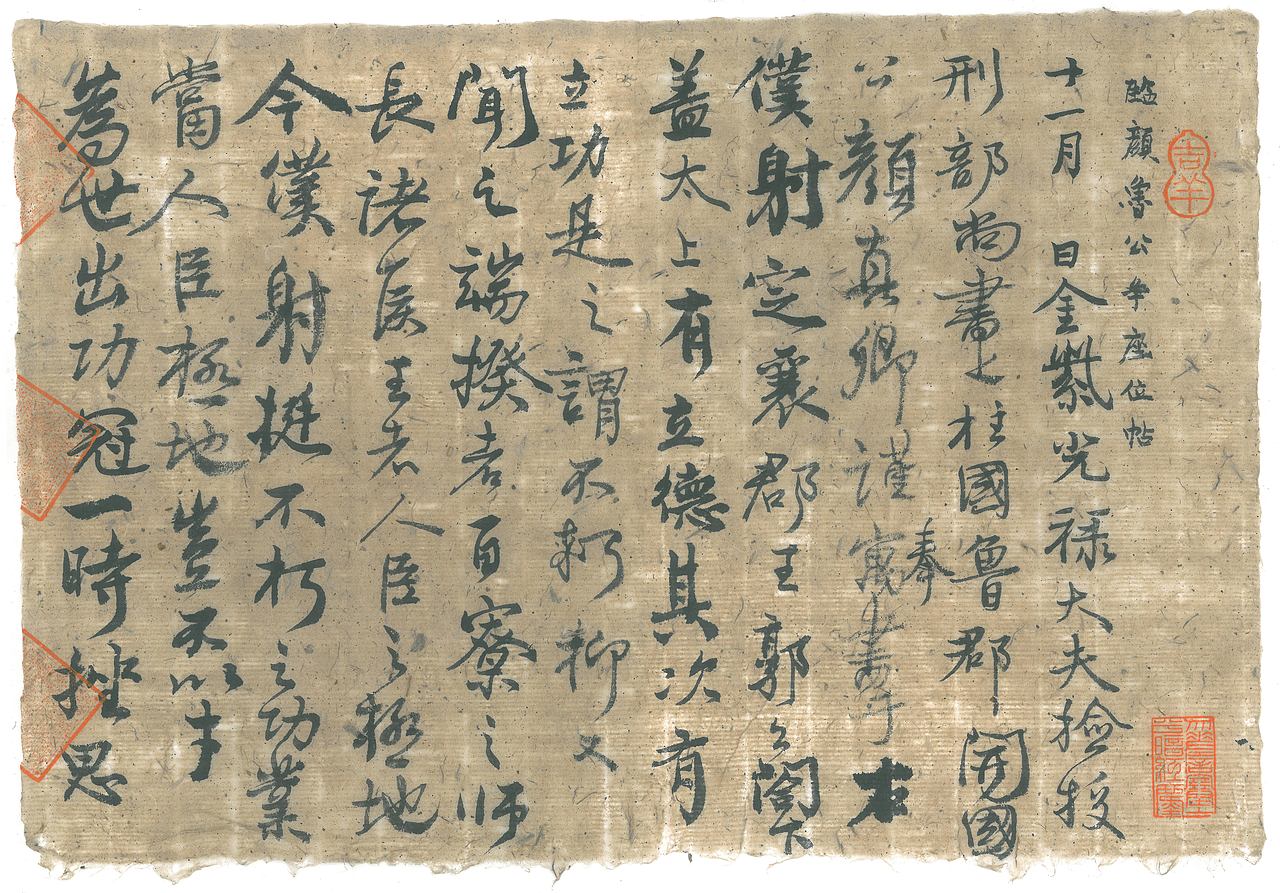 臨顏魯公爭座位帖
十一月 日金紫光禄大夫撿挍
刑部尚書上柱國魯郡開國
公顏真卿謹寓書奉于右
僕射定襄郡王郭公閤下
盖太上有立德其次有
立功是之謂不朽抑又
聞之端揆者百寮之師
長諸侯王者人臣之極地
今僕射挺不朽之功業
當人臣極地豈不以才
為世出功冠一時挫思